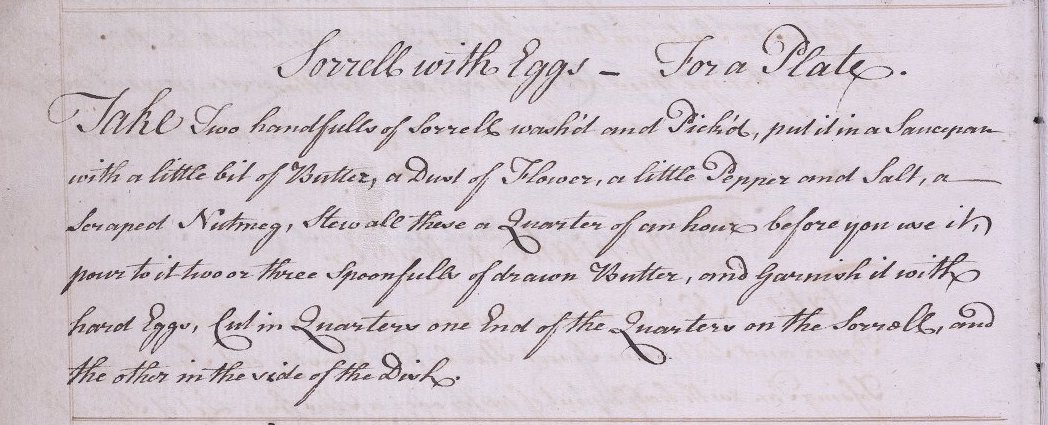 Sorrell with Eggs - For a Plate.
Take Two handfulls of Sorrell wash'd and Pick'd, put it in a Saucepan
with a little bit of Butter, a Dust of Flower, a little Pepper and Salt, a
scraped Nutmeg, Stew all these a Quarter of an hour before you use it,
pour to it two or three Spoonfulls of drawn Butter, and Garnish it with
hard Eggs, Cut in Quarters one End of the Quarters on the Sorrell, and
the other in the side of the Dish.